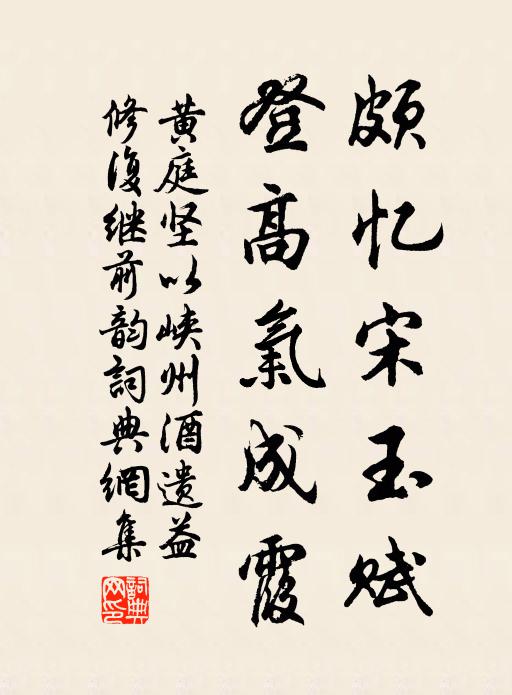 頗忆宋玉赋
登高氣成霞
黄庭坚以峡州酒遗益
修復继前韵詞典網集
詞典网印